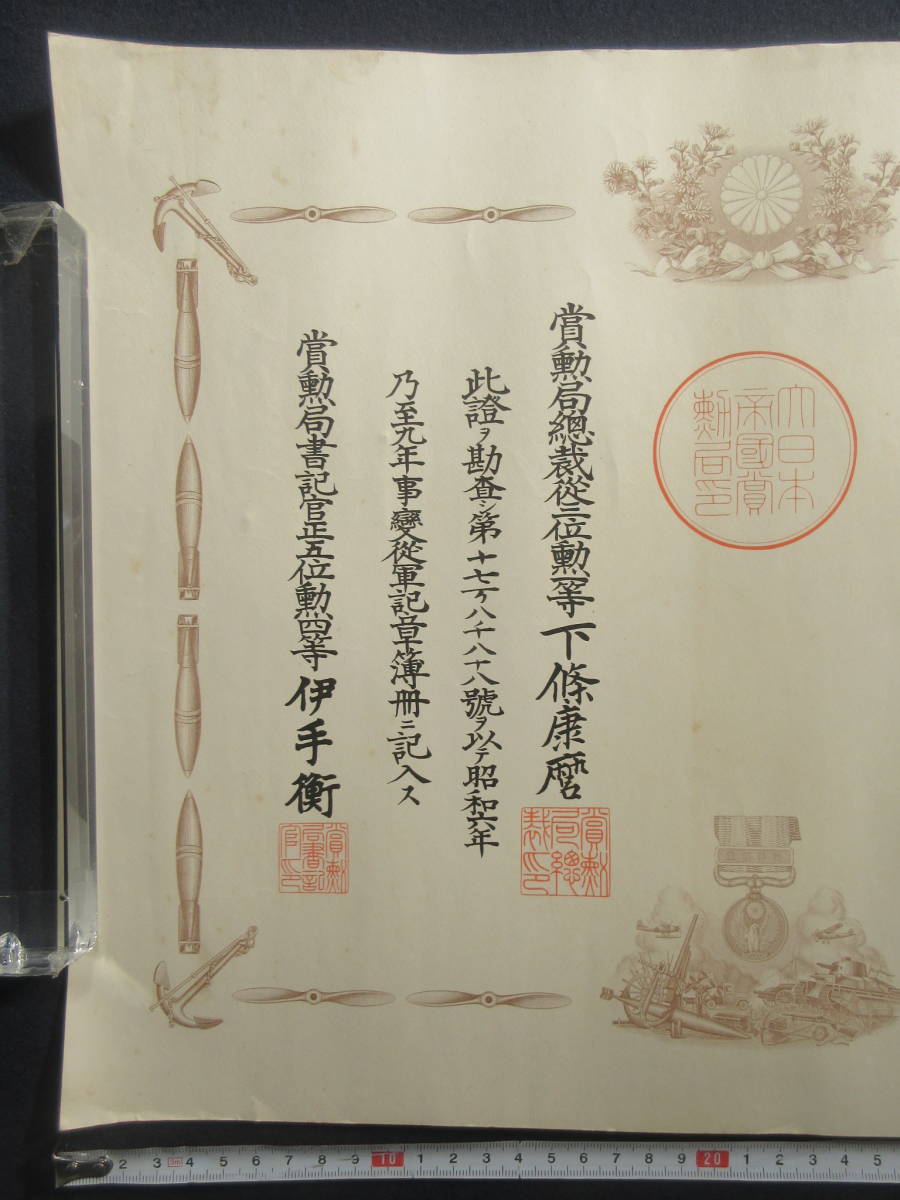 大日本
帝國賞
勲局印
賞勲局總裁從三位勲一等下條康麿
賞勲
局總
裁印
此證ヲ勘査シ第十七万八千八十八號ヲ以テ昭和六年
乃至九年事變從軍記章簿冊ニ記入ス
賞勲局書記官正五位勲四等伊手衡
賞勲
局書記
官印
2 3 3m 4 5 6 7 8 9 10 1 2 3 4 5 6 7 8 9 20 1 2 3 4 5